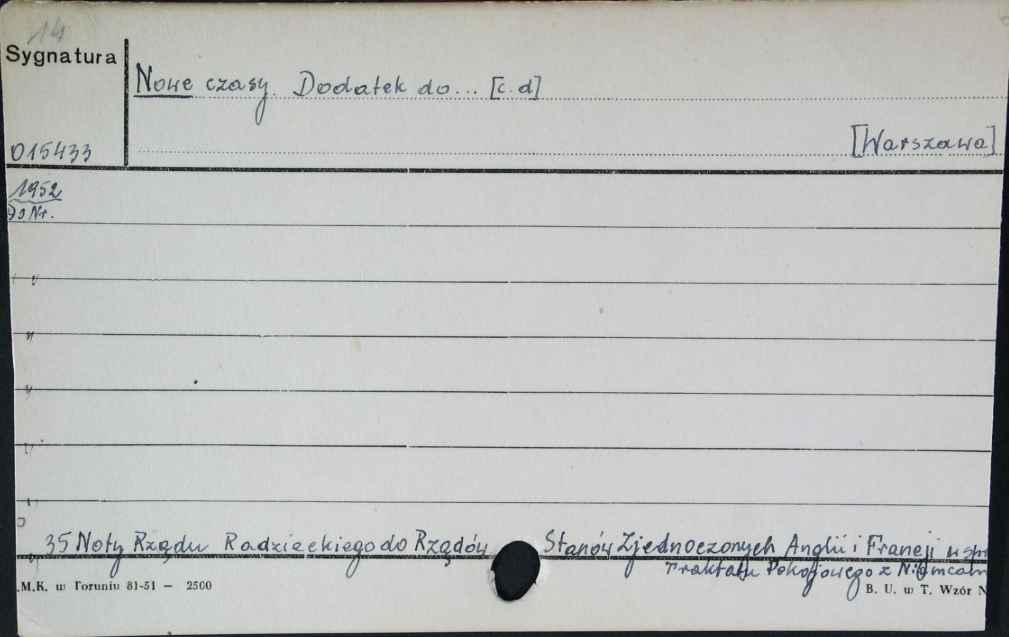 14
Sygnatura
Nowe czasy. Dodatek do... [c.d]
015433
[Warszawa]
1952
Do Nr.
35 Noty Rządu Radzieckiego do Rządów Stanów Zjednoczonych Anglii i Francji w spr
Traktatu Pokojowego z Niemcami
.M.K. w Toruniu 81-51 — 2500
B. U. w T. Wzór N